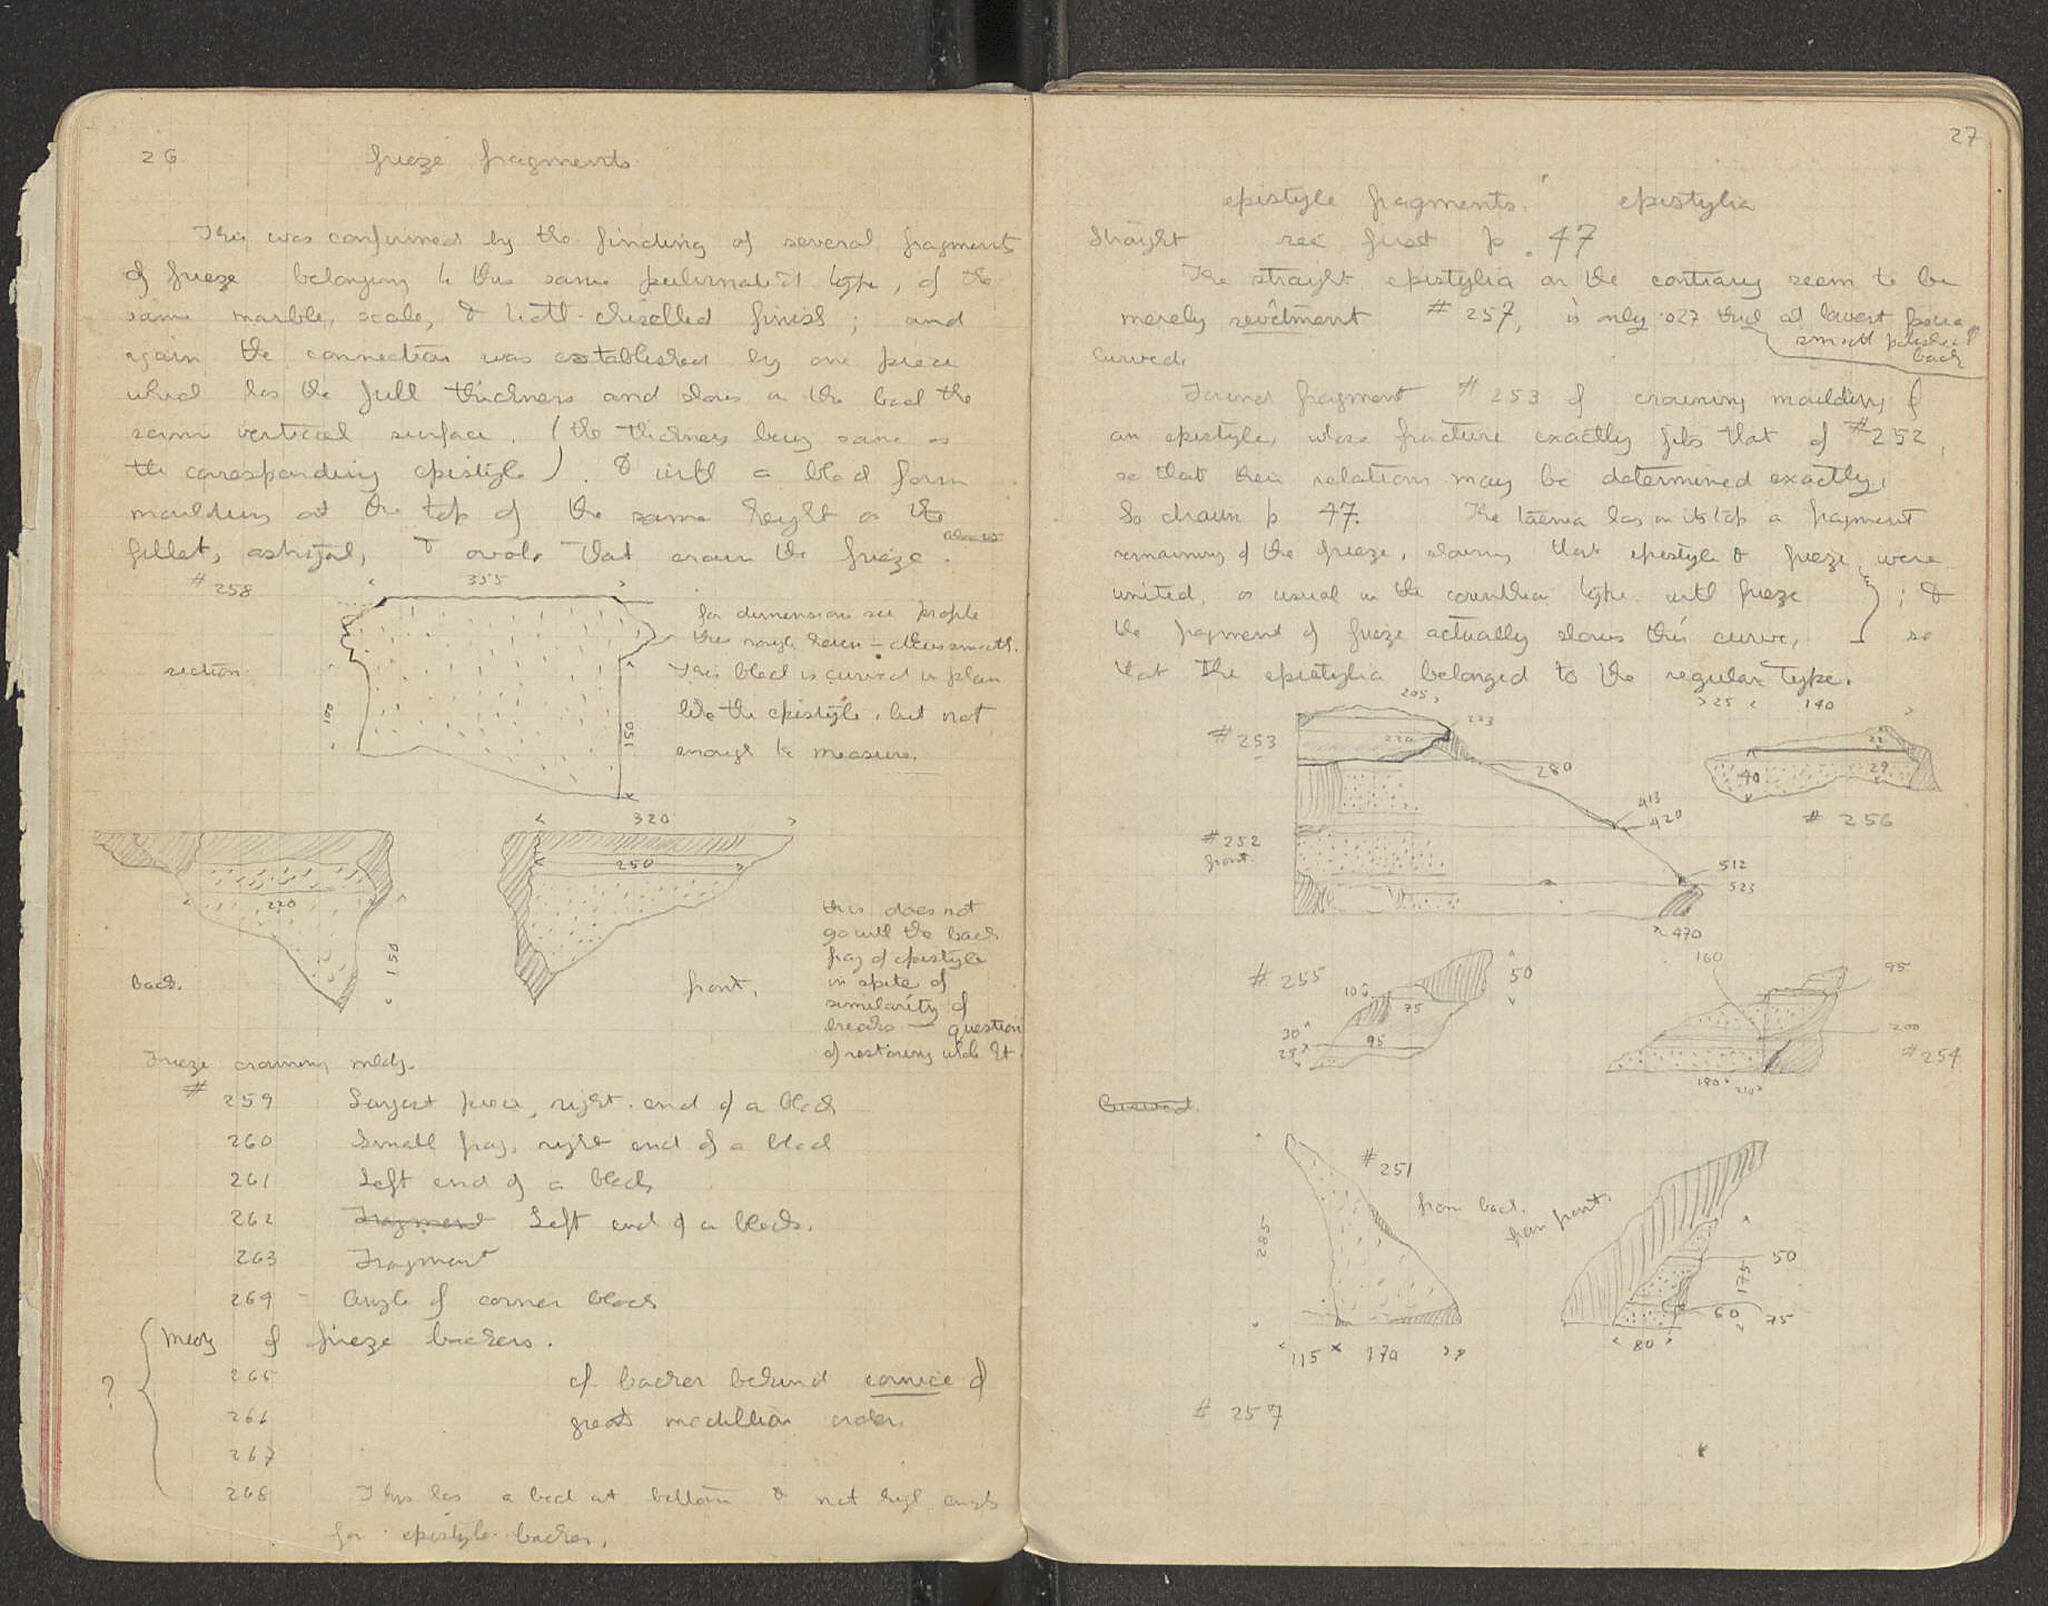 26
frieze fragments
This was confirmed by the finding of several fragments
of frieze belonging to this same pulvinated type, of the
same marble, scale, & tooth-chiselled finish ; and
again the connection was established by one piece
which has the full thickness and shows on the back the
same vertical surface. (the thickness being same as
the corresponding epistyle) . & with a block form
moulding at the top of the same height as the
fillet, astragal, & ovolo that crown the frieze .
# 258
355
for dimensions see profile
this rough hewn — others smooth.
section
This block is curved in plan
like the epistyle, but not
enough to measure.
100
150
320
250
220
150
back.
front.
this does not
go with the back
frag of epistyle
in spite of
similarity of
breaks — question
of restoring whole ht.
Frieze crowning mldg.
# 259 Largest piece, right end of a block
260 Small frag, right end of a block
261 Left end of a block
262 Fragment Left end of a block.
263 Fragment
264 - Angle of corner block
? Mldg of frieze backers.
265 cf backer behind cornice of
266 great modillion order.
267
268 This has a bed at bottom & not high enough
for epistyle backer.
27
epistyle fragments. epistylia
Straight see first p. 47
The straight epistylia on the contrary seem to be
merely revêtment # 257, is only .027 thick at lowest fascia
smooth polished
back
curved.
Found fragment # 253 of crowning moulding of
an epistyle, whose fracture exactly fits that of #252,
so that their relations may be determined exactly.
So drawn p 47. The taenia has on its top a fragment
remaining of the frieze, showing that epistyle & frieze were
united, as usual in the corinthian type with frieze ; &
the fragment of frieze actually shows this curve, so
that the epistylia belonged to the regular type.
205
# 253
223
220
280
413
420
# 252
front
512
523
470
25 140
22
40
29
# 256
# 255
105
75
50
30
25
95
160
95
200
# 254
180
210
Curved.
# 251
from back.
from front.
285
115 170
50
175
60
75
80
# 257